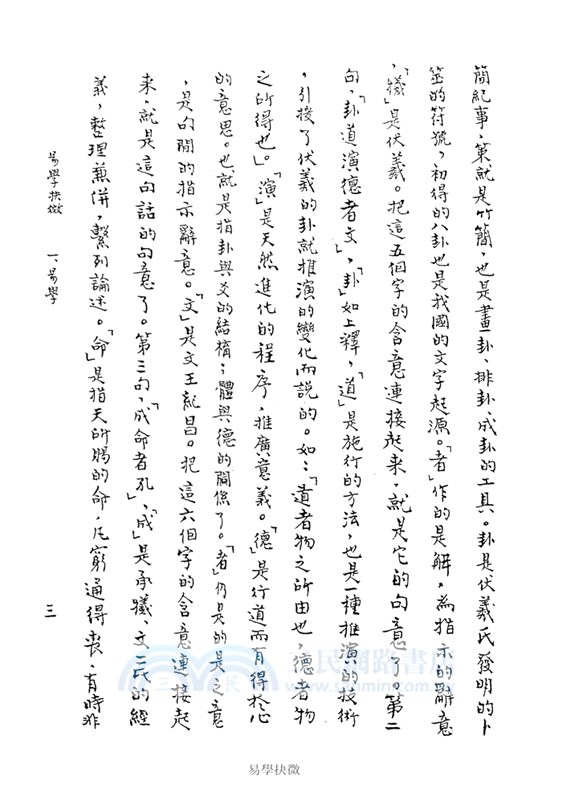 簡紀事。策就是竹簡，也是畫卦、排卦、成卦的工具。卦是伏羲氏發明的卜
筮的符號，初得的八卦也是我國的文字起源。「者」作的是解，為指示的辭意
，「犧」是伏羲。把這五個字的含意連接起來，就是它的句意了。第二
句，「卦道演德者文」，「卦」如上釋，「道」是施行的方法，也是一種推演的技術
，引接了伏羲的卦就推演的變化而說的。如：「道者物之所由也，德者物
之所得也」。「演」是天然進化的程序，推廣意義。「德」是行道而有得於心
的意思。也就是指卦與爻的結構；體與德的關係了。「者」仍是的是之意
，是句間的指示辭意。「文」是文王姬昌。把這六個字的含意連接起
來，就是這句話的句意了。第三句，「成命者孔」，「成」是承犧、文三氏的經
義，整理兼併，繫列論述。「命」是指天所賜的命，凡窮通得喪、有時非
易學抉微 一、易學 三
三民網路書店
www.sanmin.com.tw
易學抉微